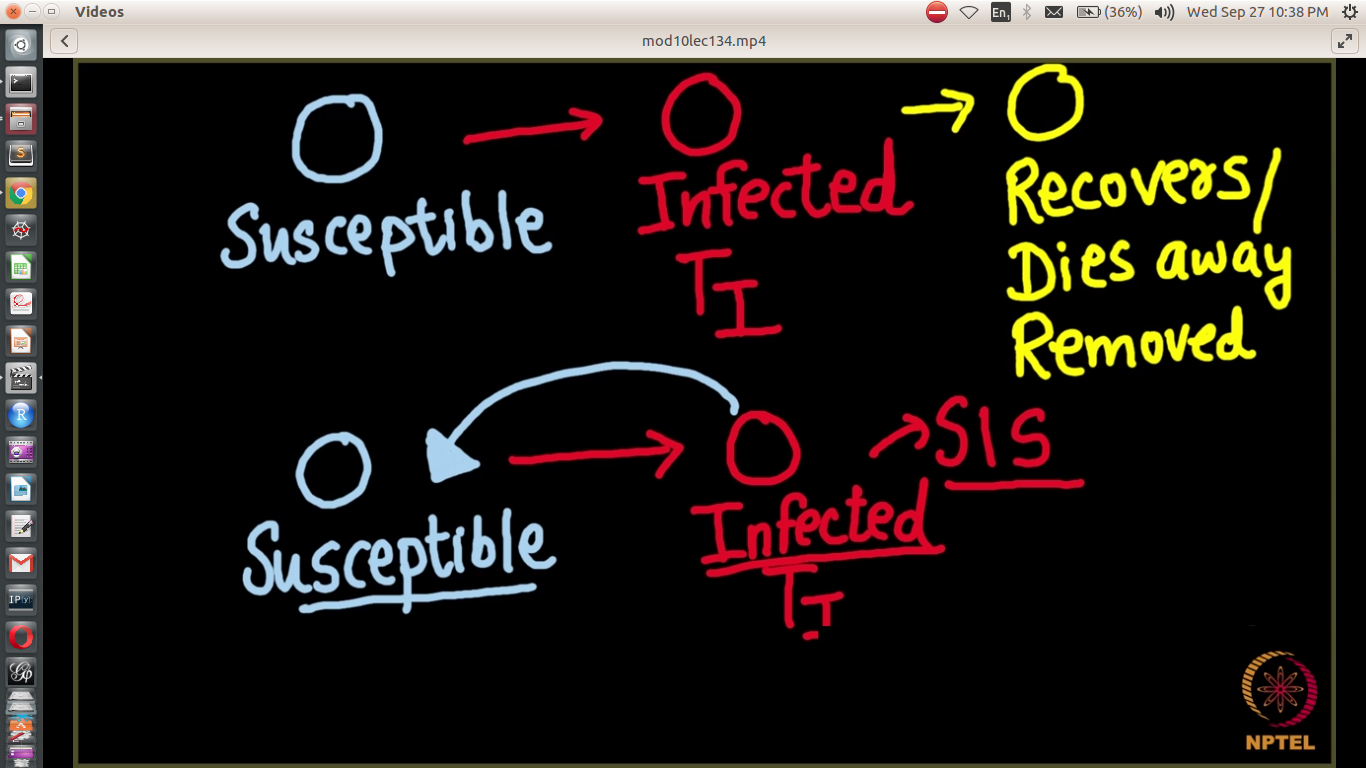 Videos
En1
(36%)
Wed Sep 27 10:38 PM
mod10lec134.mp4
Susceptible
Infected
TI
Recovers/
Dies away
Removed
SIS
Susceptible
Infected
TI
NPTEL